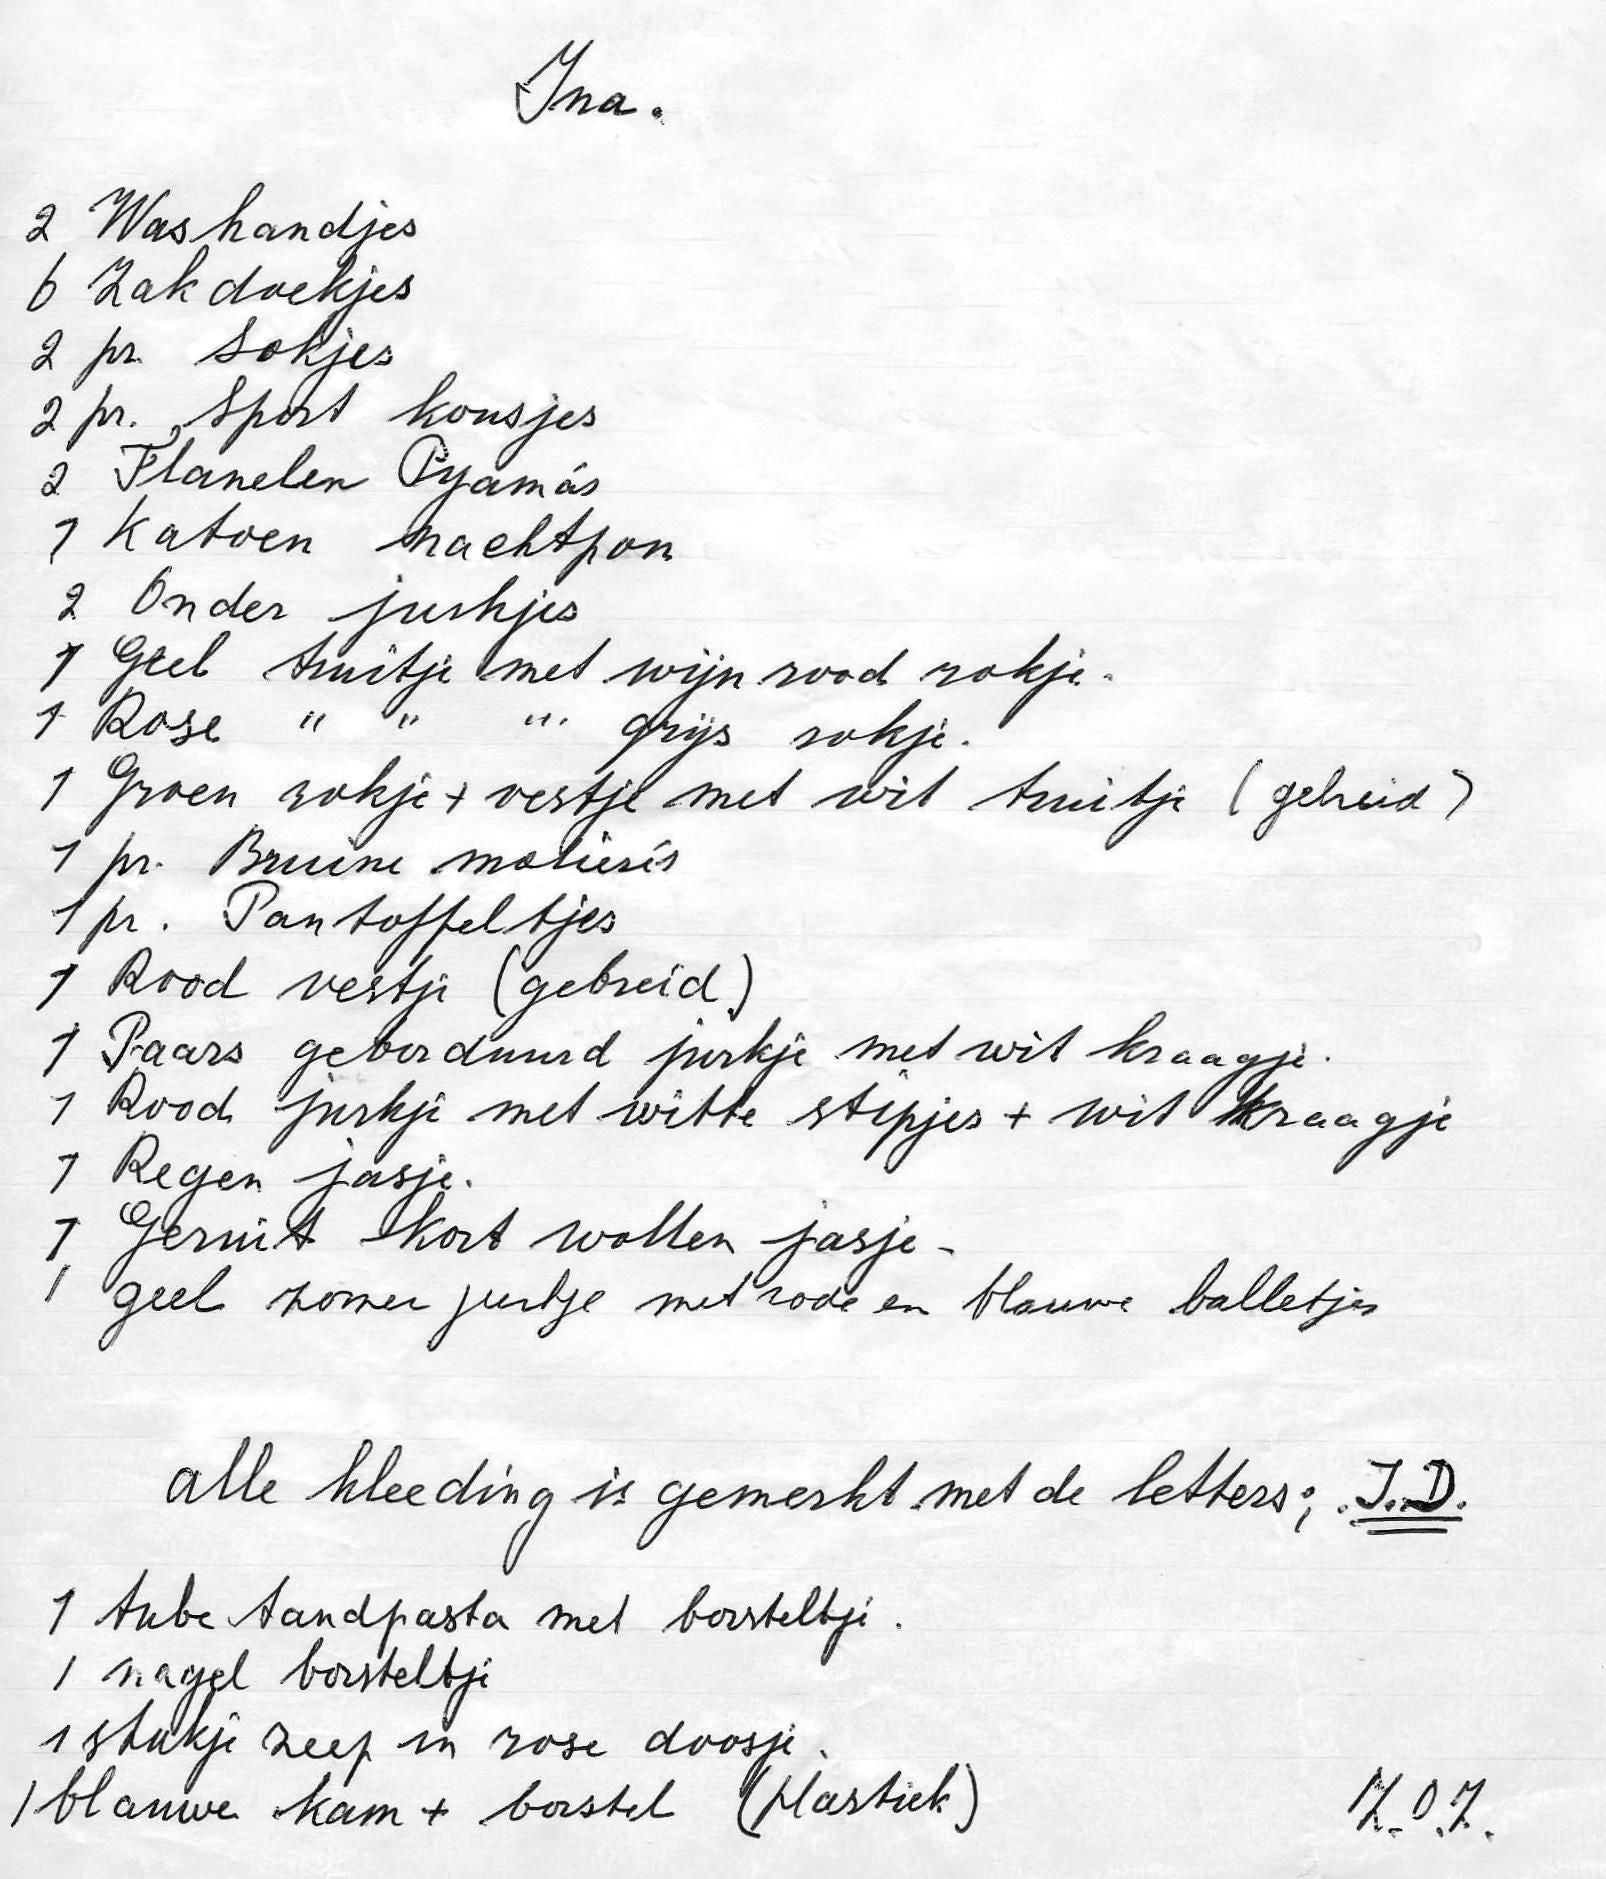 Ina.
2 Washandjes
6 Zakdoekjes
2 pr. Sokjes
2 pr. Sport kousjes
2 Flanelen Pyamás
1 Katoen nachtpon
2 Onder jurkjes
1 Geel truitje met wijn rood rokje.
1 Rose " " " grijs rokje.
1 Groen rokje + vestje met wit truitje (gebreid)
1 pr. Bruine molières
1 pr. Pantoffeltjes
1 Rood vestje (gebreid)
1 Paars geborduurd jurkje met wit kraagje.
1 Rood jurkje met witte stipjes + wit kraagje
1 Regen jasje.
1 Geruit kort wollen jasje -
1 geel zomer jurkje met rode en blauwe balletjes
alle kleeding is gemerkt met de letters; I.D.
1 tube tandpasta met borsteltje.
1 nagel borsteltje
1 stukje zeep in rose doosje.
1 blauwe kam + borstel (plastiek)
Z.O.Z.